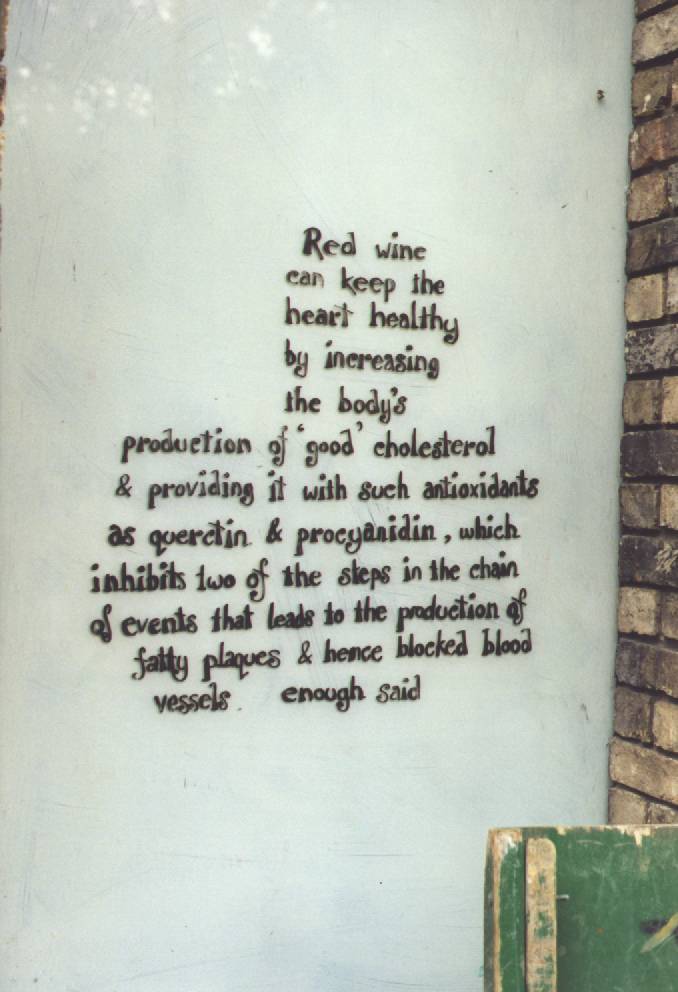 Red wine
can keep the
heart healthy
by increasing
the body's
production of 'good' cholesterol
& providing it with such antioxidants
as querctin & procyanidin, which
inhibits two of the steps in the chain
of events that leads to the production of
fatty plaques & hence blocked blood
vessels. enough said